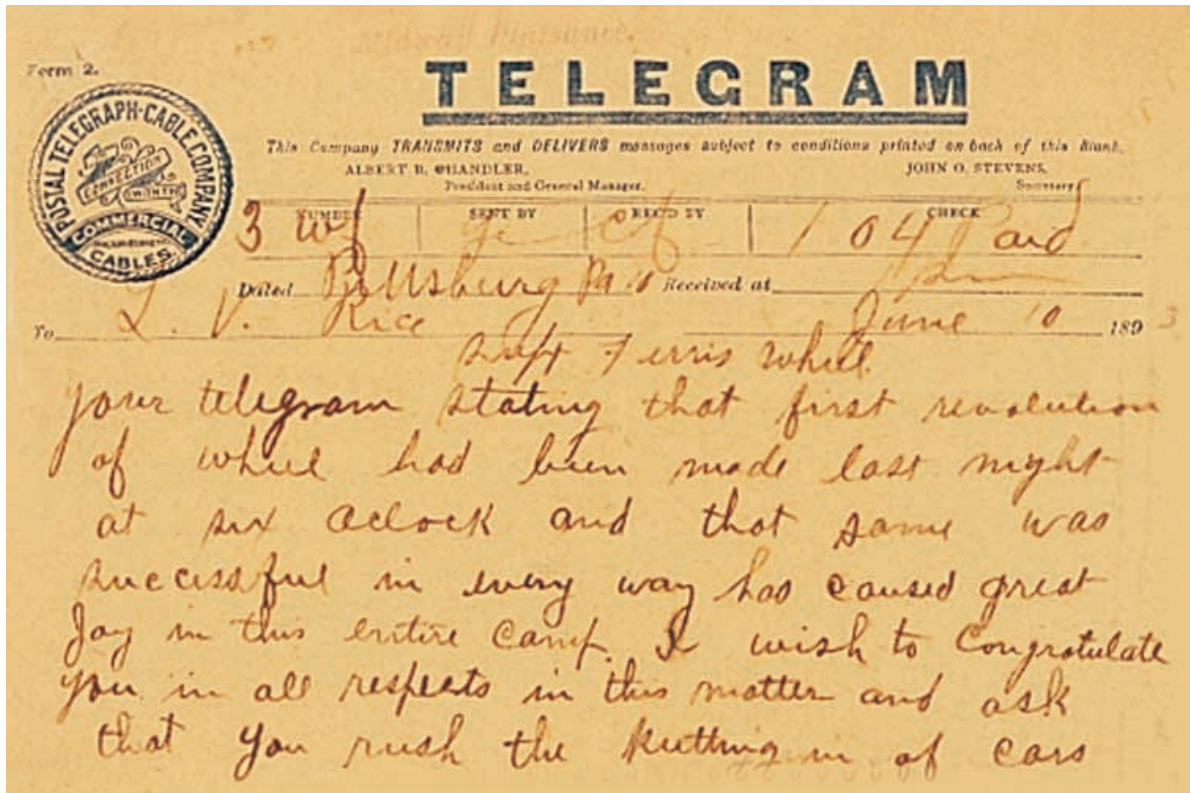 Form 2.
TELEGRAM
POSTAL TELEGRAPH-CABLE COMPANY
COMMERCIAL
CABLES
This Company TRANSMITS and DELIVERS messages subject to conditions printed on back of this blank.
ALBERT B. CHANDLER, JOHN O. STEVENS,
President and General Manager. Secretary
NUMBER SENT BY REC'D BY CHECK
3 104 Paid
Dated Pittsburg Pa Received at
To L. V. Rice June 10 1893
Supt Ferris Wheel
your telegram stating that first revolution
of wheel had been made last night
at six oclock and that same was
successful in every way has caused great
Joy in this entire camp. I wish to Congratulate
you in all respects in this matter and ask
that you rush the putting in of cars